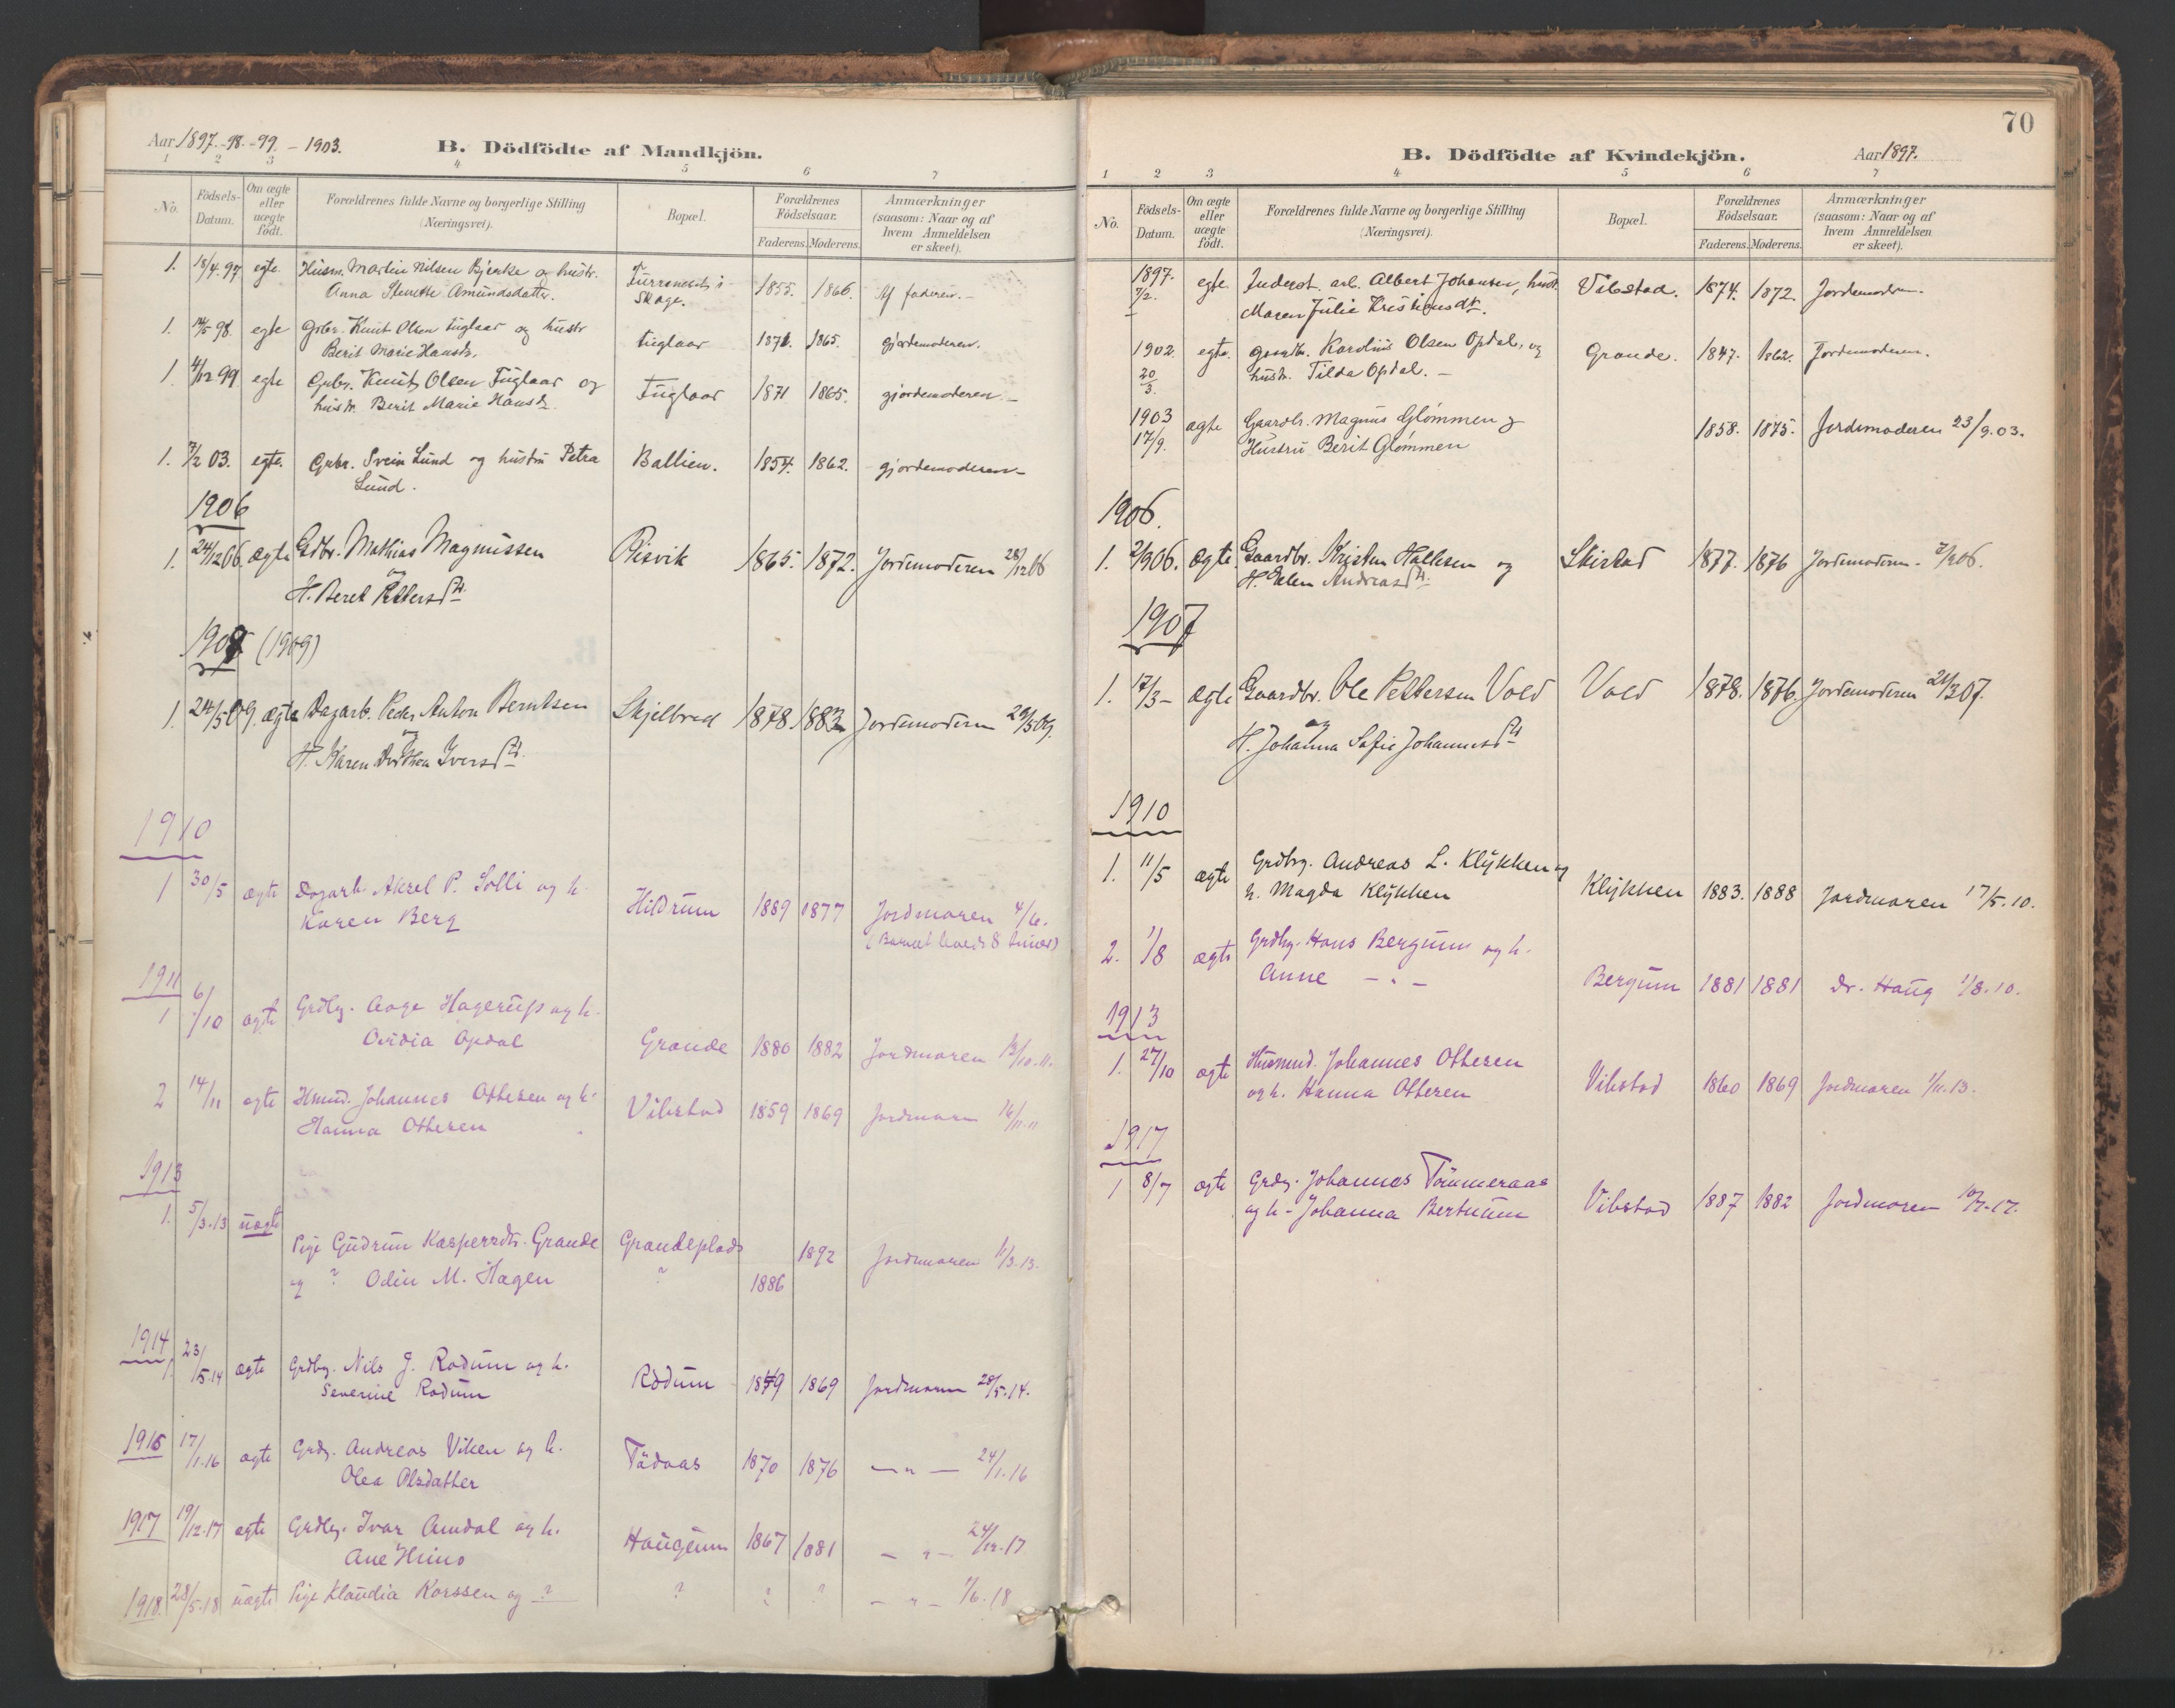 Aar 1897.-98.-99. - 1903.
B. Dödfödte af Mandkjön.
1 2 3 4 5 6 7
No.
Födsels-Datum.
Om ægte eller uægte födt.
Forældrenes fulde Navne og borgerlige Stilling (Næringsvei).
Bopæl.
Forældrenes Födselsaar.
Faderens. Moderens.
Anmærkninger (saasom: Naar og af hvem Anmeldelsen er skeet).
1. 18/4.97 egte. Husm. Martin Nilsen Bjerke og hustr. Skage. 1855. 1866. Af faderen.-
Anna Amundsdatter.
1. 98. egte Grbr. Knut Olsen Fuglaar og hustr Fuglaar 1871. 1865. gjordemoderen.
Berit Marie Hansdr.
1 4/12 99 egte Grbr. Knut Olsen Fuglaar og Fuglaar 1871 1865. gjordemoderen.-
hustr. Berit Marie Hansdr.
1. 7/2 03. egte. Grbr. Svein Lund og hustru Petra Ballien. 1854. 1862. gjordemoderen-
Lund.
1906
1. 24/12 06. ægte Gdbr. Mathias Magnussen Risvik 1865. 1872. Jordemoderen 28/12 06
og
H. Beret Pettersdtr.
(1909)
1. 24/5 09. ægte Dagarb. Peder Anton Berntsen Skjelbred 1878 1883 Jordemoderen 29/5 09.
og
H. Karen Dorthea Iversdtr.
1910
1 30/5 ægte Dagarb Aksel P. Solli og h. Hildrum 1889 1877 Jordmoren 4/6.
Karen Berg (Barnet levede 8 timer)
1911
1 6/10 ægte Grdbr. Aage Hagerup og h. Grande 1880 1882 Jordmoren 13/10.11.
Ovidia Opdal
2 14/11 ægte Hmnd. Johannes Ottesen og h. Vibstad 1859 1869 Jordmoren 16/11.11
Hanna Ottesen
1913
1. 5/3.13 uægte
Pige Gudrun Kaspersdtr. Grande Grandeplads 1892 Jordmoren /3.13.
og ? Odin M. Hagen ? 1886
1914 1. 23/5.14 ægte Grdbr. Nils J. Rodum og h. Rodum 1869 Jordmoren 28/5.14.
Severine Rodum
1916 17/1.16 ægte Grdbr. Andreas Viken og h. Tödaas 1870 1876 — " — 24/1.16
Olea Olsdatter
1917 19/12.17 ægte Grdbr. Ivar Amdal og h. Haugum 1867 1881 — " — 24/12.17
Ane Himo
1918. 28/5.18 uægte Pige Klaudia Korssen og ? ? ? ? — " — 1/6.18
70
B. Dödfödte af Kvindekjön. Aar 1897.
1 2 3 4 5 6 7
No.
Födsels-Datum.
Om ægte eller uægte födt.
Forældrenes fulde Navne og borgerlige Stilling (Næringsvei).
Bopæl.
Forældrenes Födselsaar.
Faderens. Moderens.
Anmærkninger (saasom: Naar og af hvem Anmeldelsen er skeet).
1897. 7/2. egte Inderst. arb. Albert Johansen, hust. Vibstad. 1874. 1872. Jordemoderen.
Maren Julie Kristiansdtr.
1902. 20/3. egte. Gaardbr. Karolius Olsen Opdal, og Grande. 1847. 1862. Jordemoderen.
hustr. Tilda Opdal.-
1903 17/9. ægte Gaardbr. Magnus Glömmen og 1858. 1875. Jordemoderen 23/9.03.
Hustru Berit Glömmen
1906.
1. 2/9 06. Ægte Gaardbr. Kristen Halksen og Skistad 1877. 1876 Jordemoderen. /9 06.
H. Elen Andreasdtr.
1907
1. 17/3- Ægte Gaardbr. Ole Pettersen Vold Vold 1878. 1876. Jordemoderen 21/3 07.
og
H. Johanna Sofie Johannesdtr
1910
1. 11/5 ægte Grdbr. Andreas L. Klykken og Klykken 1883. 1888 Jordmoren 17/5.10.
h. Magda Klykken
2. 1/8 ægte Grdbr. Hans Bergum og h. Bergum 1881 1881 Dr. Haug 1/8.10.
Anne - " -
1913
1. 27/10 ægte Husmnd. Johannes Ottesen Vibstad 1860 1869 Jordmoren 1/11.13.
og h. Hanna Ottesen
1917
1 8/7 ægte Grdbr. Johannes Tömmeraas Vibstad 1887 1882 Jordmoren 10/7.17.
og h. Johanna Bertnum